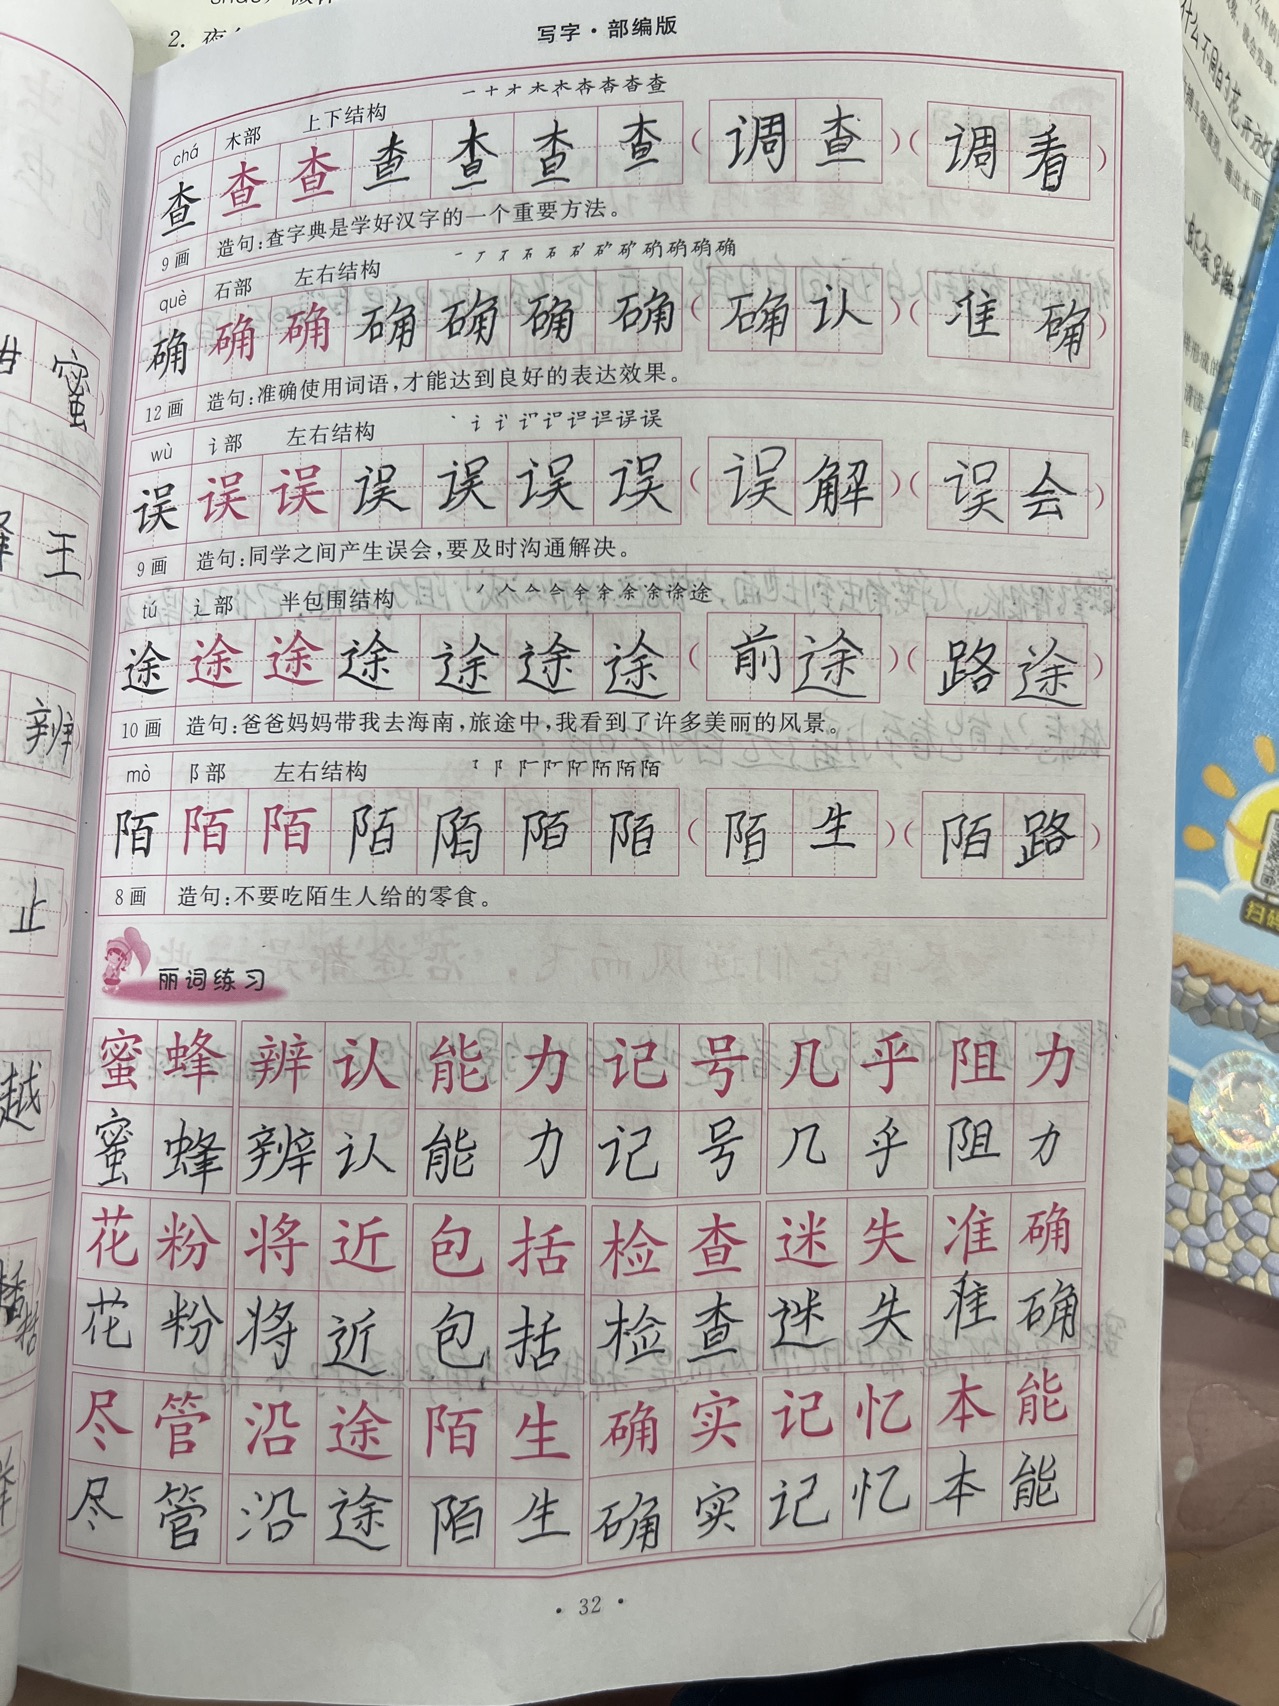 2.
写字·部编版
一十才木木杏杳查查
chá 木部 上下结构
查查查查查查查(调查)(调看)
9画 造句:查字典是学好汉字的一个重要方法。
què 石部 左右结构
确确确确确确确(确认)(准确)
12画 造句:准确使用词语,才能达到良好的表达效果。
wù 讠部 左右结构
误误误误误误误(误解)(误会)
9画 造句:同学之间产生误会,要及时沟通解决。
tú 辶部 半包围结构
途途途途途途途(前途)(路途)
10画 造句:爸爸妈妈带我去海南,旅途中,我看到了许多美丽的风景。
mò 阝部 左右结构
陌陌陌陌陌陌陌(陌生)(陌路)
8画 造句:不要吃陌生人给的零食。
丽词练习
蜜蜂 辨认 能力 记号 几乎 阻力
蜜蜂 辨认 能力 记号 几乎 阻力
花粉 将近 包括 检查 迷失 准确
花粉 将近 包括 检查 迷失 准确
尽管 沿途 陌生 确实 记忆 本能
尽管 沿途 陌生 确实 记忆 本能
·32·
蜜
王
辨
止
越
括
扫码